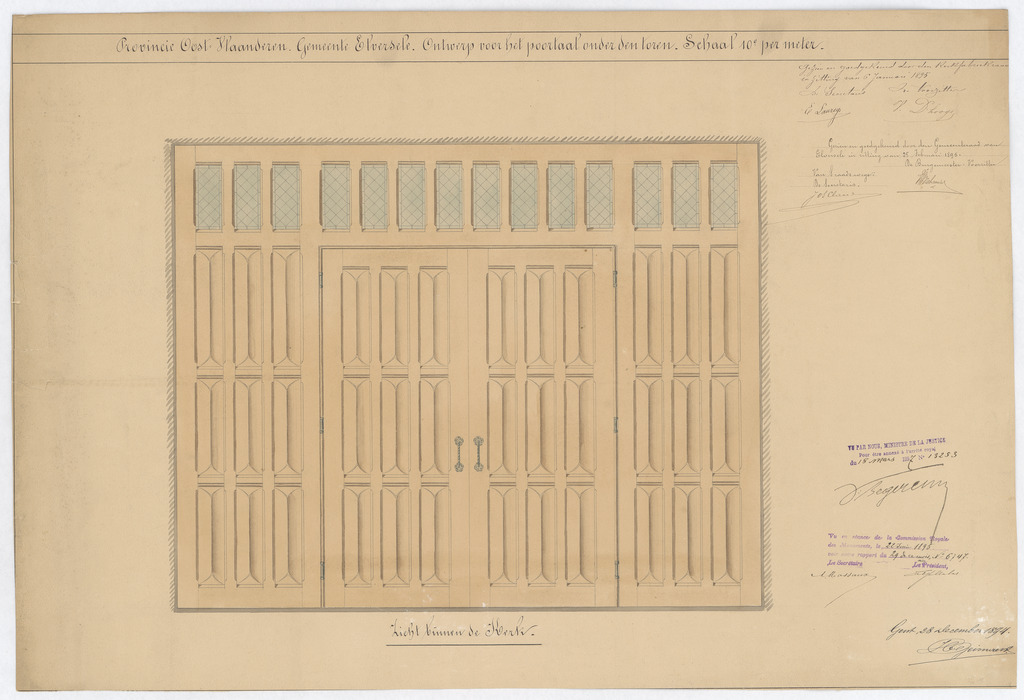 Provincie Oost-Vlaanderen. Gemeente Elversele. Ontwerp voor het poortaal onder den toren. Schaal 10ᶜ per meter.
Gezien en goedgekeurd door den Kerkfabriekraad
in zitting van 6 Januari 1895
De Secretaris De Voorzitter
Gezien en goedgekeurd door den Gemeenteraad van
Elversele in zitting van 25 Februari 1895.
De Burgemeester Voorzitter
De Secretaris.
VU PAR NOUS, MINISTRE DE LA JUSTICE
Pour être annexé à l'arrêté royal
du 18 mars 1897 Nº 13253
V. Begerem
Vu en séance de la Commission Royale
des Monuments, le 22 Juin 1895
Le Secrétaire Le Président,
Zicht binnen de Kerk.
Gent 28 December 1894.